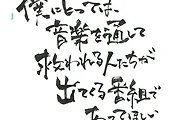 僕にとっては、
音楽を通して
救われる人たちが
出てくる番組で
あってほしい